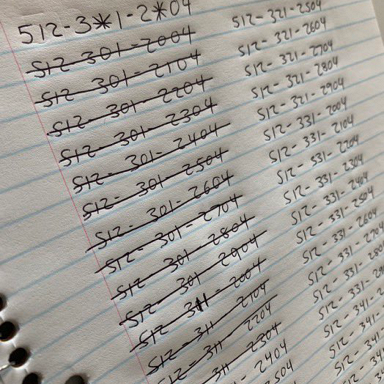 512-3*1-2*04
512-301-2004
512-301-2104
512-301-2204
512-301-2304
512-301-2404
512-301-2504
512-301-2604
512-301-2704
512-301-2804
512-301-2904
512-311-2004
512-311-2104
512-311-2204
512-311-2304
2404
512-321-2504
512-321-2604
512-321-2704
512-321-2804
512-321-2904
512-331-2004
512-331-2104
512-331-2204
512-331-2304
512-331-2404
512-331-2504
512-331-2604
512-331-2704
512-331-
512-331-
512-341-
512-341-
512-341
512-34